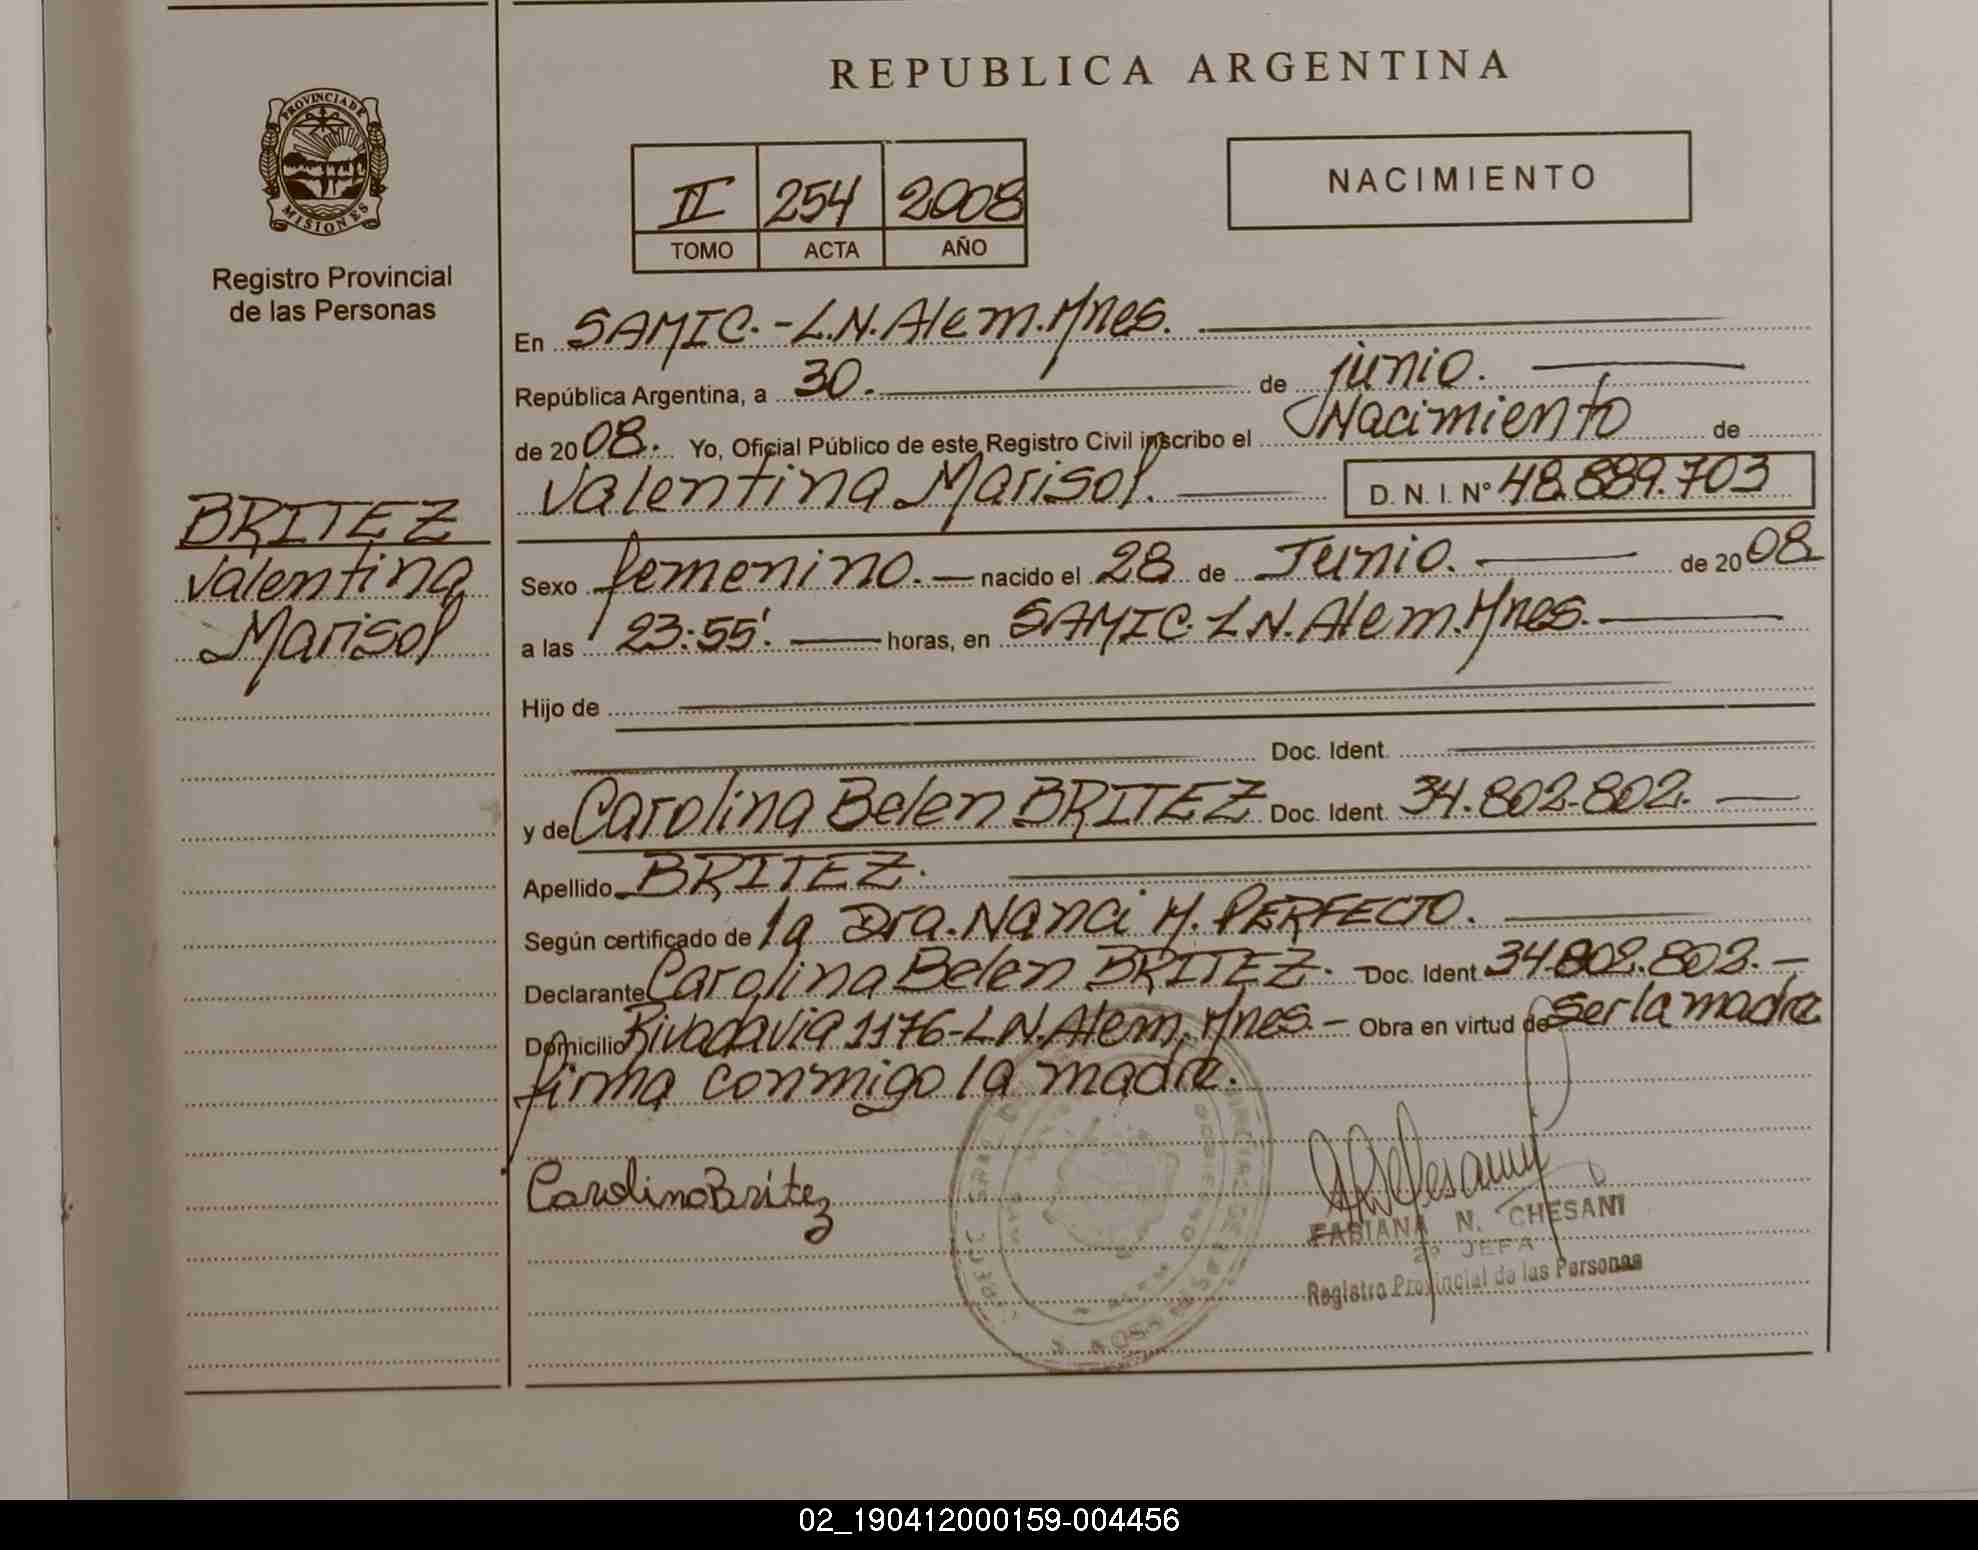 REPUBLICA ARGENTINA
PROVINCIA DE
MISIONES
Registro Provincial
de las Personas
NACIMIENTO
II 254 2008
TOMO ACTA AÑO
En SAMIC.-L.N.Alem.Mnes.
República Argentina, a 30. de junio.
de 2008. Yo, Oficial Público de este Registro Civil inscribo el Nacimiento de
Valentina Marisol. D. N. I. N° 48.889.703
BRITEZ
Valentina
Marisol
Sexo femenino.— nacido el 28 de Junio. de 2008
a las 23:55'. horas, en SAMIC. L N. Alem. Mnes.
Hijo de
Doc. Ident.
y de Carolina Belen BRITEZ Doc. Ident. 34.802.802.
Apellido BRITEZ.
Según certificado de la Dra. Nanci M. PERFECTO.
Declarante Carolina Belen BRITEZ. Doc. Ident 34.802.802.-
Domicilio Rivadavia 1176-L N. Alem, Mnes.- Obra en virtud de ser la madre
firma conmigo la madre.
Carolina Britez
FABIANA N. CHESANI
2º JEFA
Registro Provincial de las Personas
02_190412000159-004456